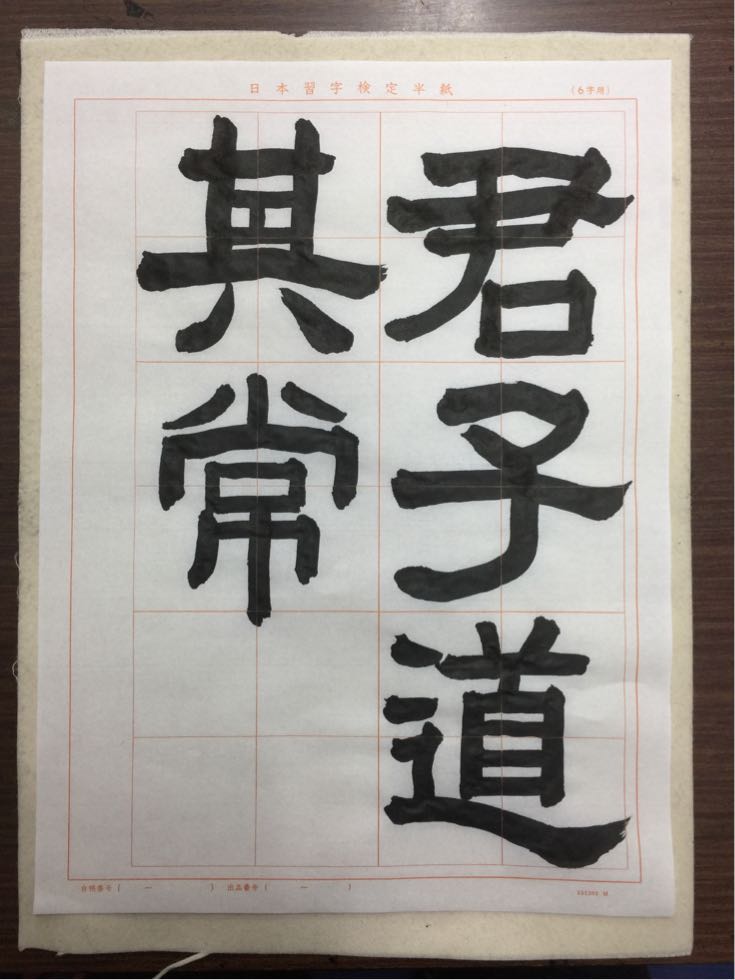 日本習字検定半紙
(6字用)
君子道
其常
台帳番号( ー ) 出品番号( ー )